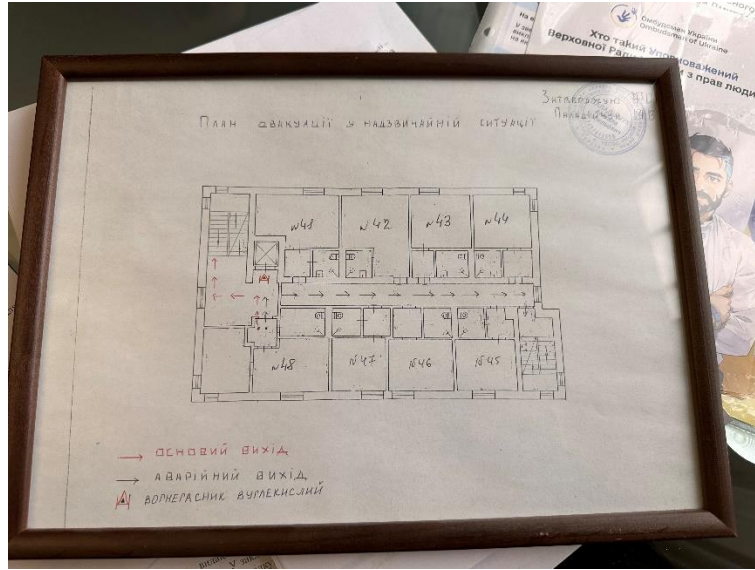 Омбудсмен України
Ombudsman of Ukraine
Хто такий Уповноважений
Верховної з прав люди
Затверджую
План евакуації у надзвичайній ситуації
№41
№42
№43
№44
№48
№47
№46
№45
ОСНОВИЙ ВИХІД
АВАРІЙНИЙ ВИХІД
ВОГНЕГАСНИК ВУГЛЕКИСЛИЙ